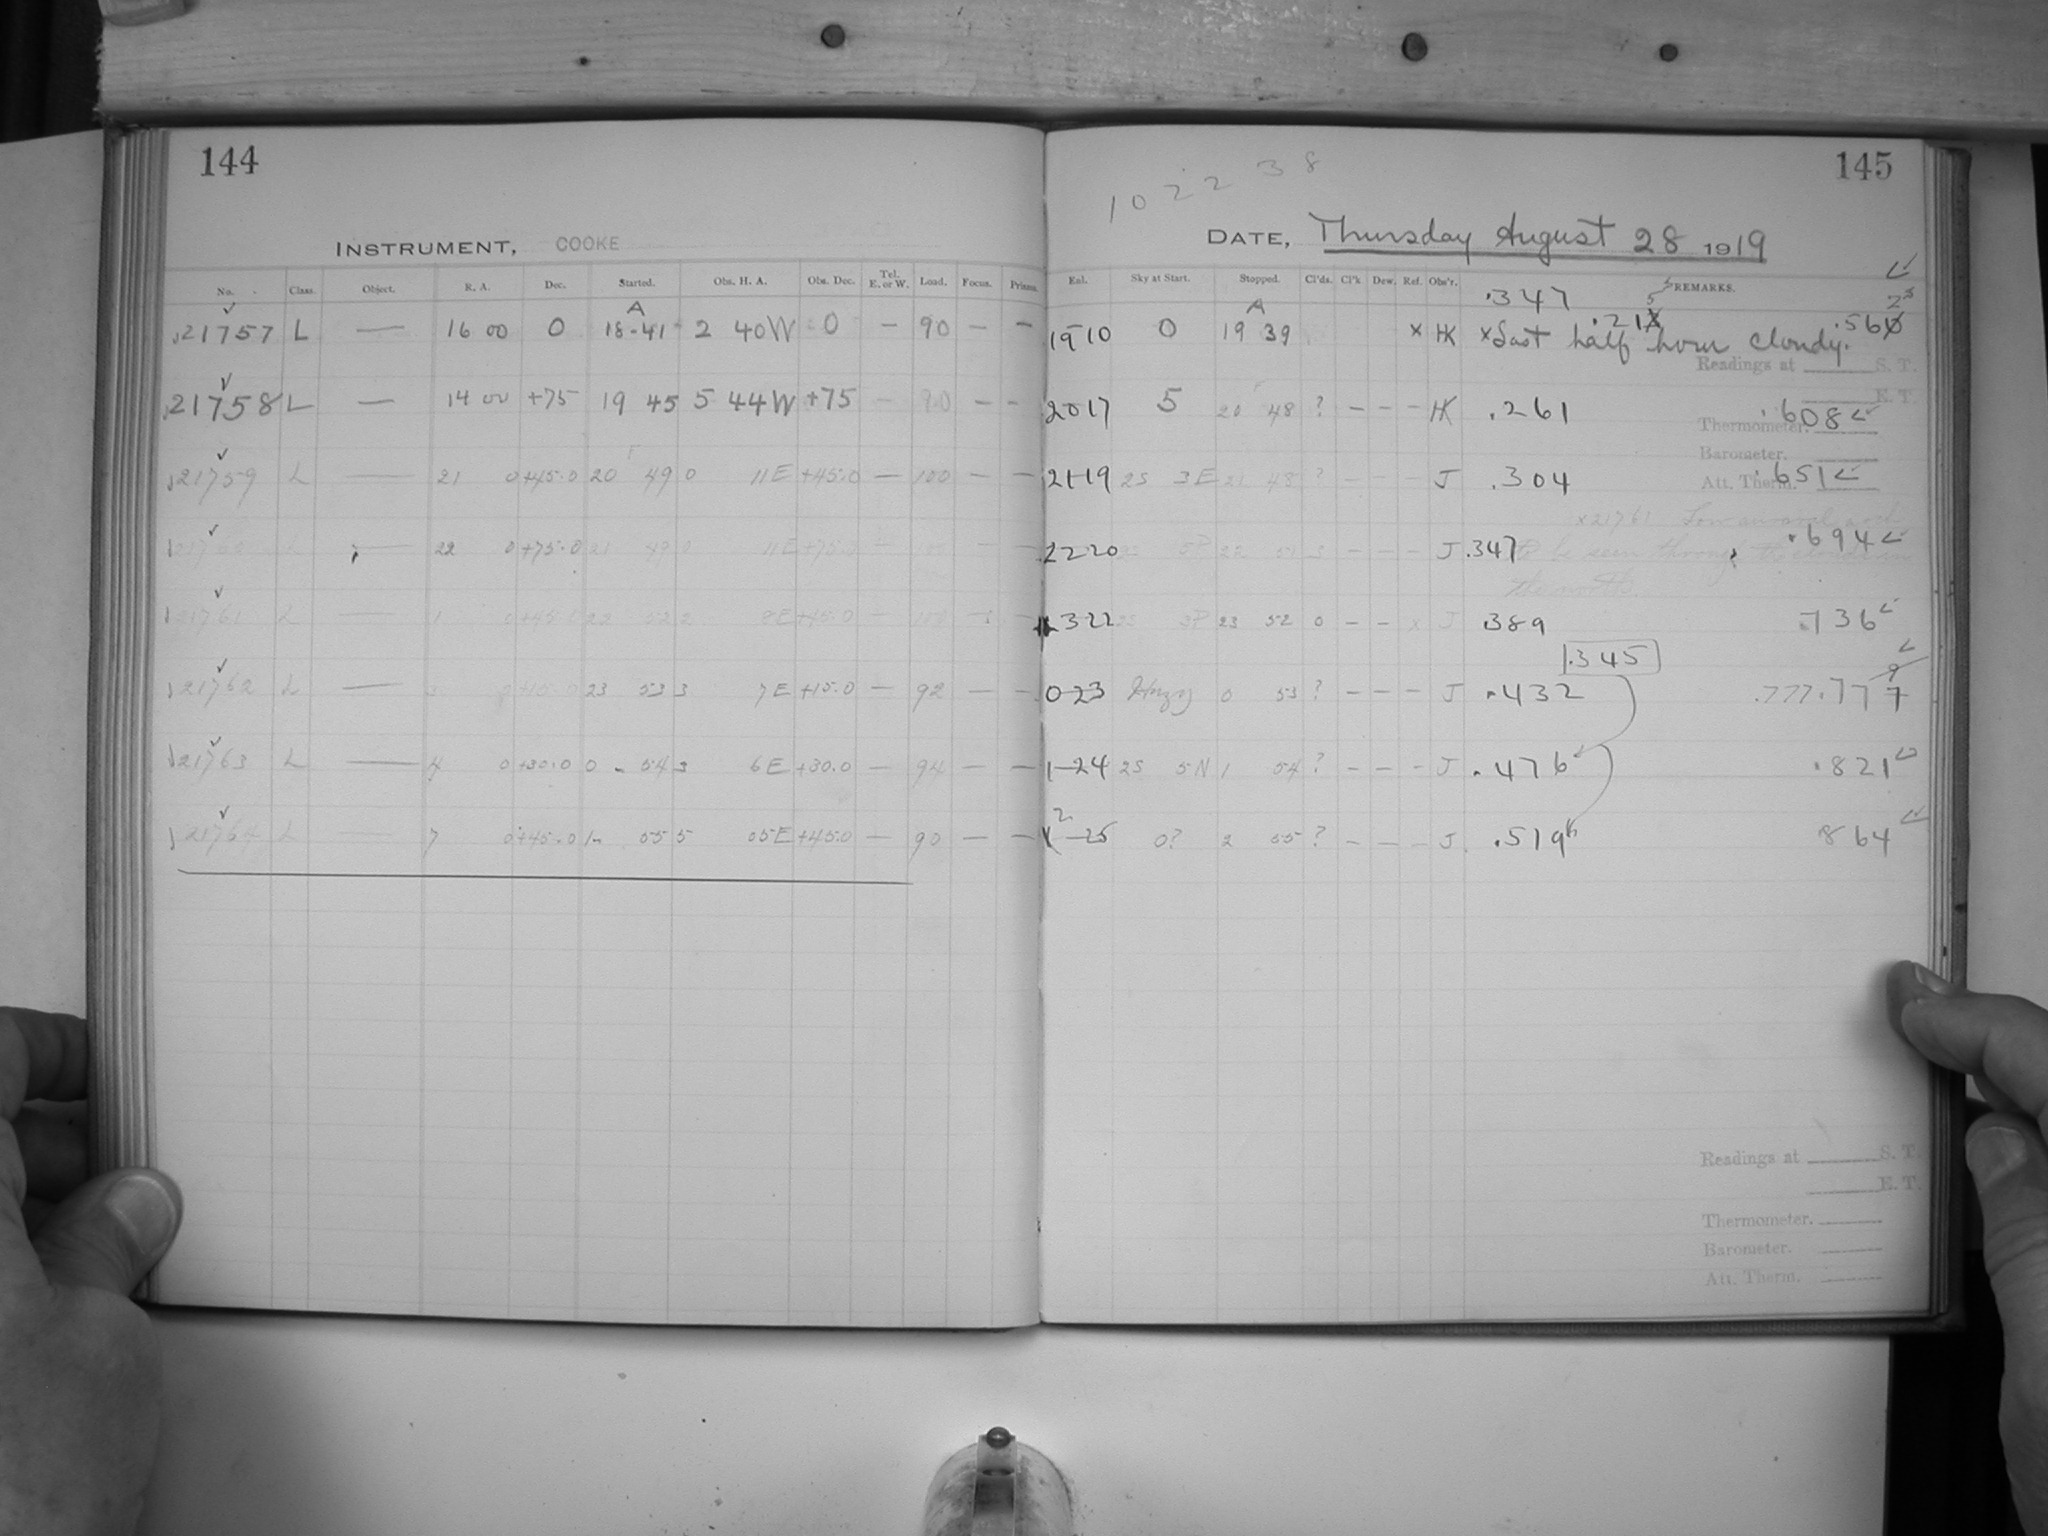 144
INSTRUMENT, COOKE
No. Class. Object. R. A. Dec. Started. Obs. H. A. Obs. Dec. Tel. E. or W. Load. Focus. Prisms.
A
21757 L — 16 00 0 18-41 2 40W 0 — 90 — —
21758 L — 14 00 +75 19 45 5 44W +75 — 90 — —
21759 L — 21 0 +45.0 20 49 0 11E +45.0 — 100 — —
22 0 +75.0 21 49 0 11E +75.0
21761 L — 1 0 +45.0 22 52 2 8E +45.0 —
21762 L — 23 53 3 7E +15.0 — 92 — —
21763 L — 4 0 +30.0 0 - 54 3 6E +30.0 — 94 — —
21764 L — 7 0 +45.0 1- 05 5 05E +45.0 — 90 — —
145
1 0 2 2 3 8
DATE, Thursday August 28 1919
Enl. Sky at Start. Stopped. Cl'ds. Cl'k Dew. Ref. Obs'r. REMARKS.
.347
A
19-10 0 19 39 x HK x Last half hour cloudy.
Readings at S. T.
E. T.
20 17 5 20 48 ? — — — HK .261 .608
Thermometer.
Barometer.
21-19 2S 3E 21 48 ? — — — J .304 .651
Att. Therm.
x21761
22 20 — — — J .347 .694
to be seen through
the north
2322 23 52 0 — — x J .389 .736
1.345
0-23 Hazy 0 53 ? — — — J .432 .777 .77
1-24 2S 5N 1 54 ? — — — J .476 .821
2-25 0? 2 55 ? — — — J .519 864
Readings at S. T.
E. T.
Thermometer.
Barometer.
Att. Therm.